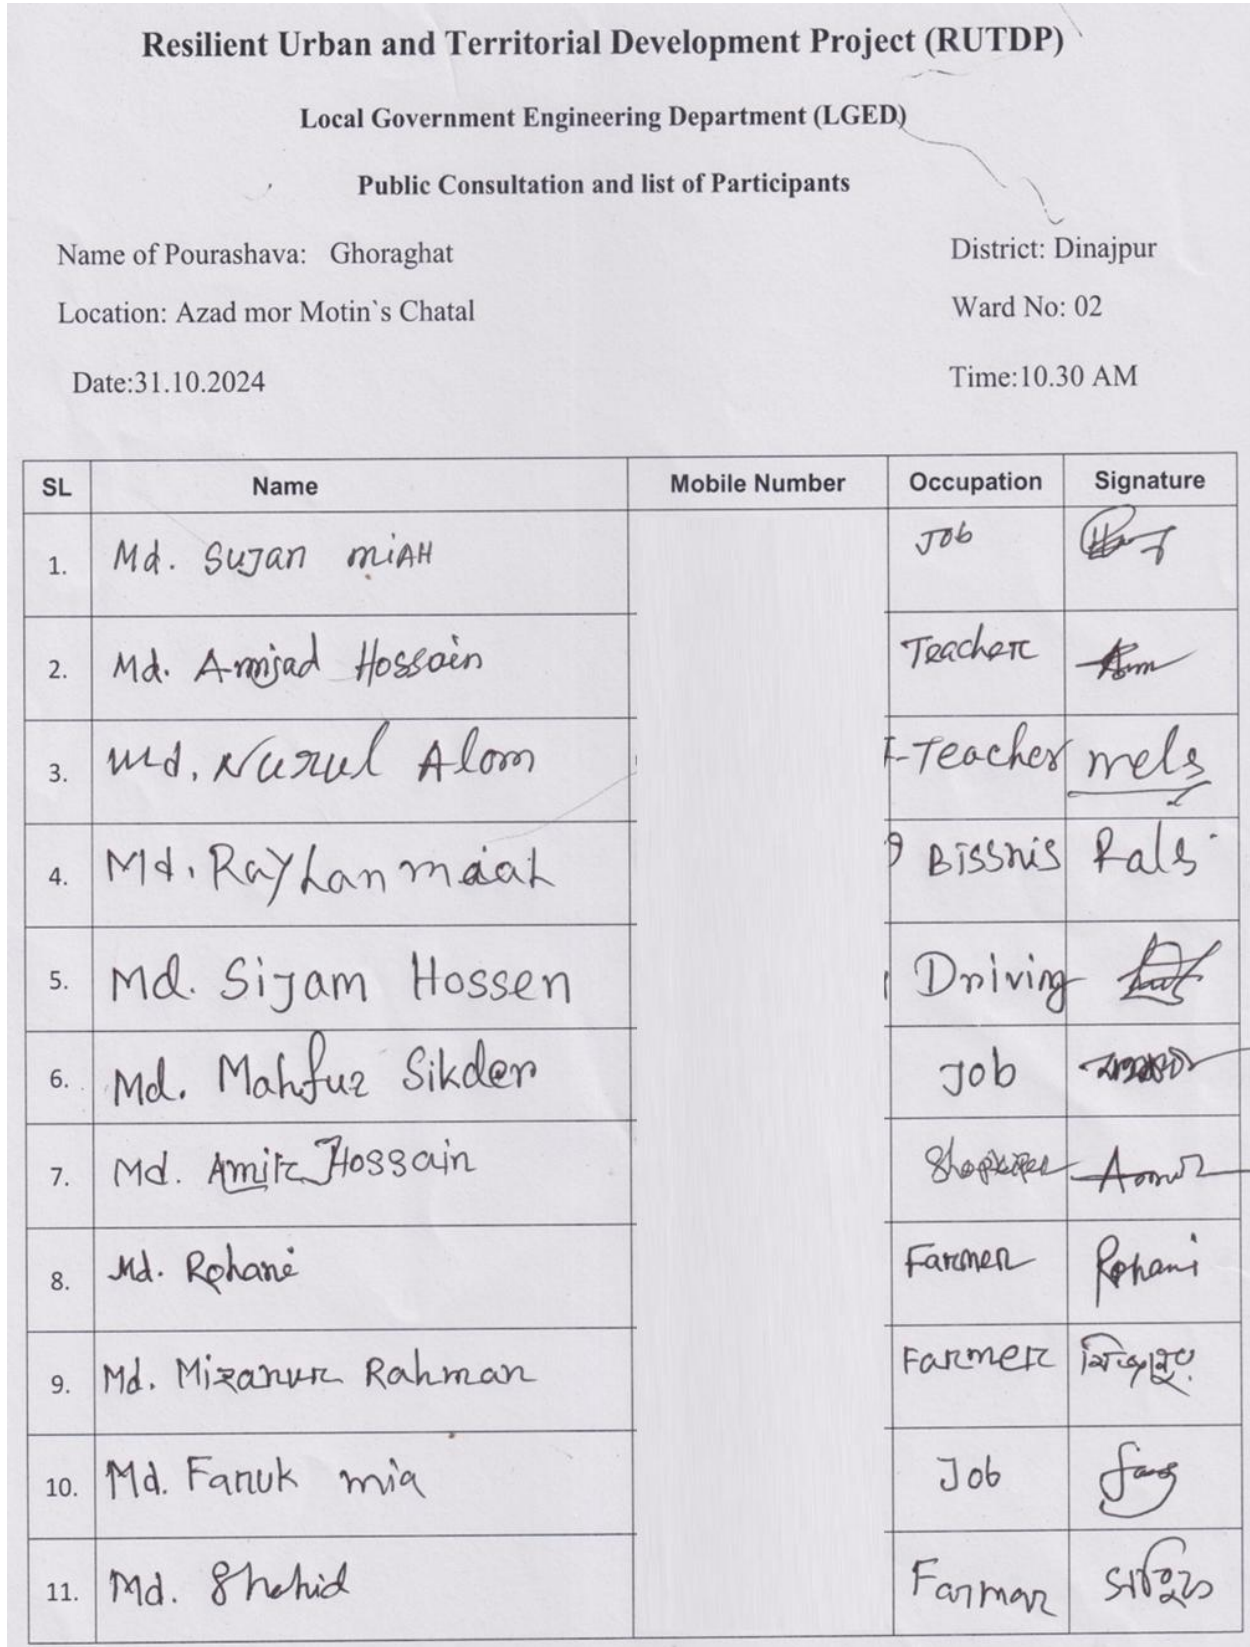 Resilient Urban and Territorial Development Project (RUTDP)
Local Government Engineering Department (LGED)
Public Consultation and list of Participants
Name of Pourashava: Ghoraghat District: Dinajpur
Location: Azad mor Motin`s Chatal Ward No: 02
Date:31.10.2024 Time:10.30 AM
SL Name Mobile Number Occupation Signature
1. Md. Sujan miAH Job
2. Md. Amjad Hossain Teacher
3. Md. Nurul Alom Teacher
4. Md. Rayhan miah Bissnis
5. Md. Sijam Hossen Driving
6. Md. Mahfuz Sikder Job
7. Md. Amir Hossain
8. Md. Rohani Farmer Rohani
9. Md. Mizanur Rahman Farmer
10. Md. Faruk mia Job
11. Md. Shahid Farmar